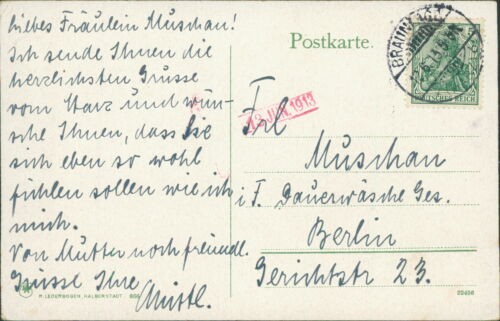 Liebes Fräulein Muschau!
Ich sende Ihnen die
herzlichsten Grüsse
vom Harz und wün-
sche Ihnen, dass Sie
sich eben so wohl
fühlen sollen wie ich
mich.
Von Mutter noch freundl.
Grüsse Ihre
R. LEDERBOGEN, HALBERSTADT
Postkarte.
BRAUNLAGE
DEUTSCHES REICH
13. JUN. 1913
Frl
Muschau
i F. Dauerwäsche Ges.
Berlin
Gerichtstr 23.